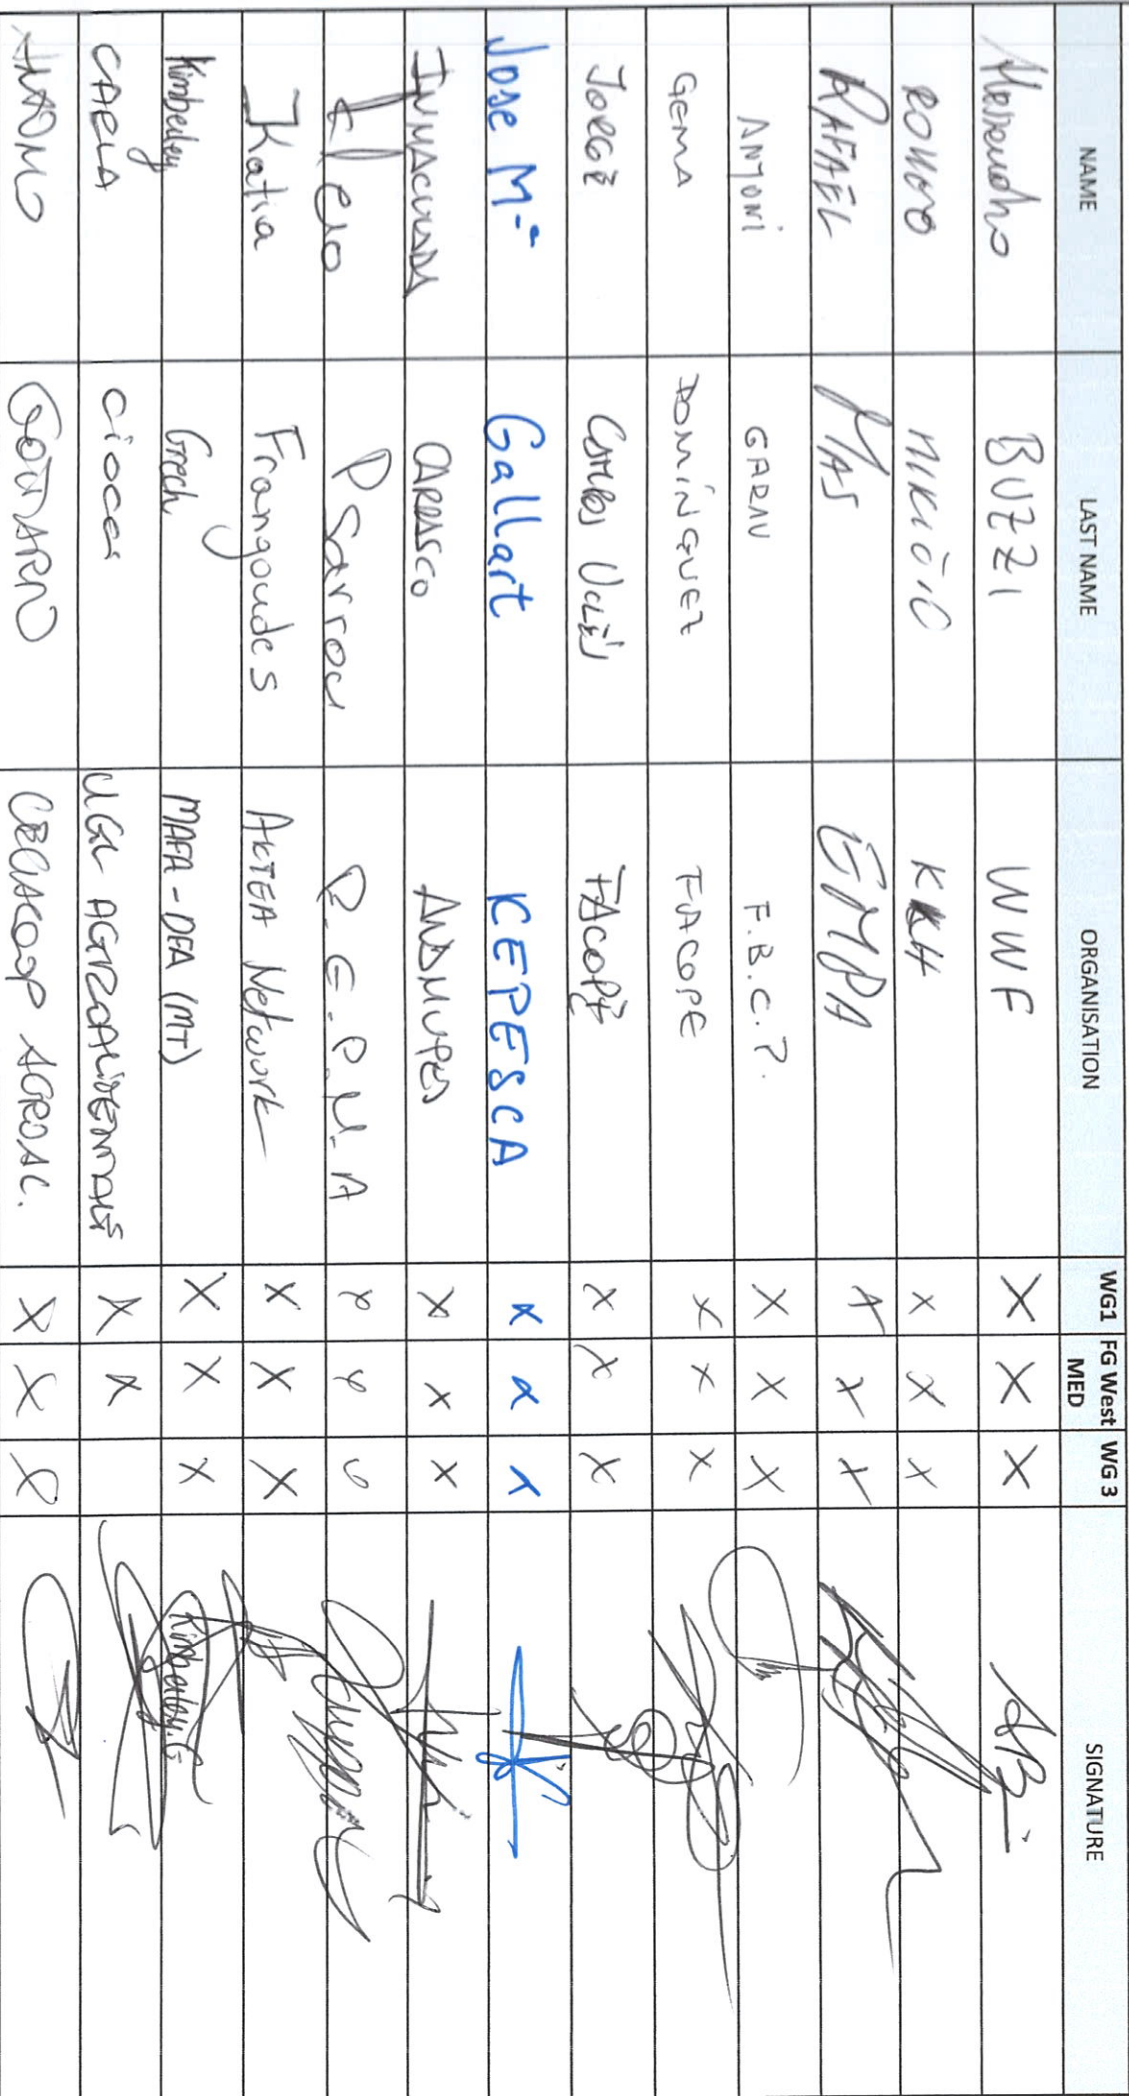 NAME LAST NAME ORGANISATION WG1 FG West MED WG 3 SIGNATURE
Alessandro BUZZI WWF X X X AB
ROMANO MIKIČIĆ KKH X X X
RAFAEL MAS EMPA X X X
ANTONI GARAU F.B.C.P. X X X
GEMA DOMÍNGUEZ FACOPE X X X
JORGE CAMPOS FACOPE X X X
Jose Mª Gallart CEPESCA X X X
INMACULADA CARRASCO ANDMUPES X X X
P Sarrou P.E.P.M.A X X
Katia Frangoudes AKTEA Network X X X
Kimberley Grech MAFA - DFA (MT) X X X Kimberley.G
CARLA Ciocci UGL AGROALIMENTARE X X
GOTTARDO LEGACOOP AGROAL. X X X